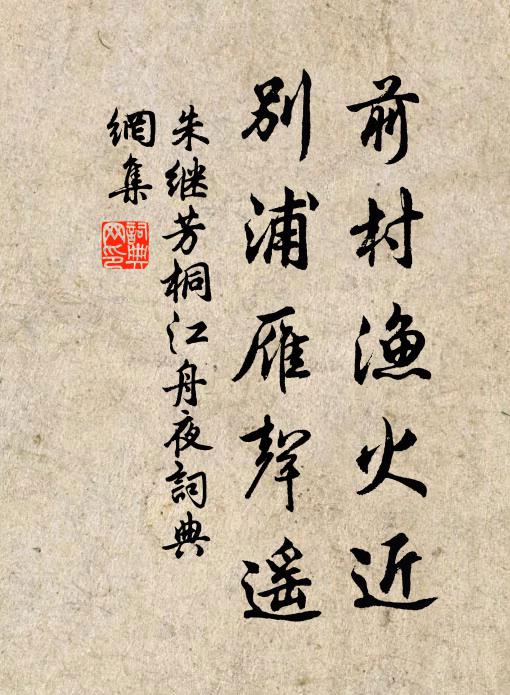 前村渔火近
别浦雁声遥
朱继芳桐江舟夜詞典
網集
詞典
网印